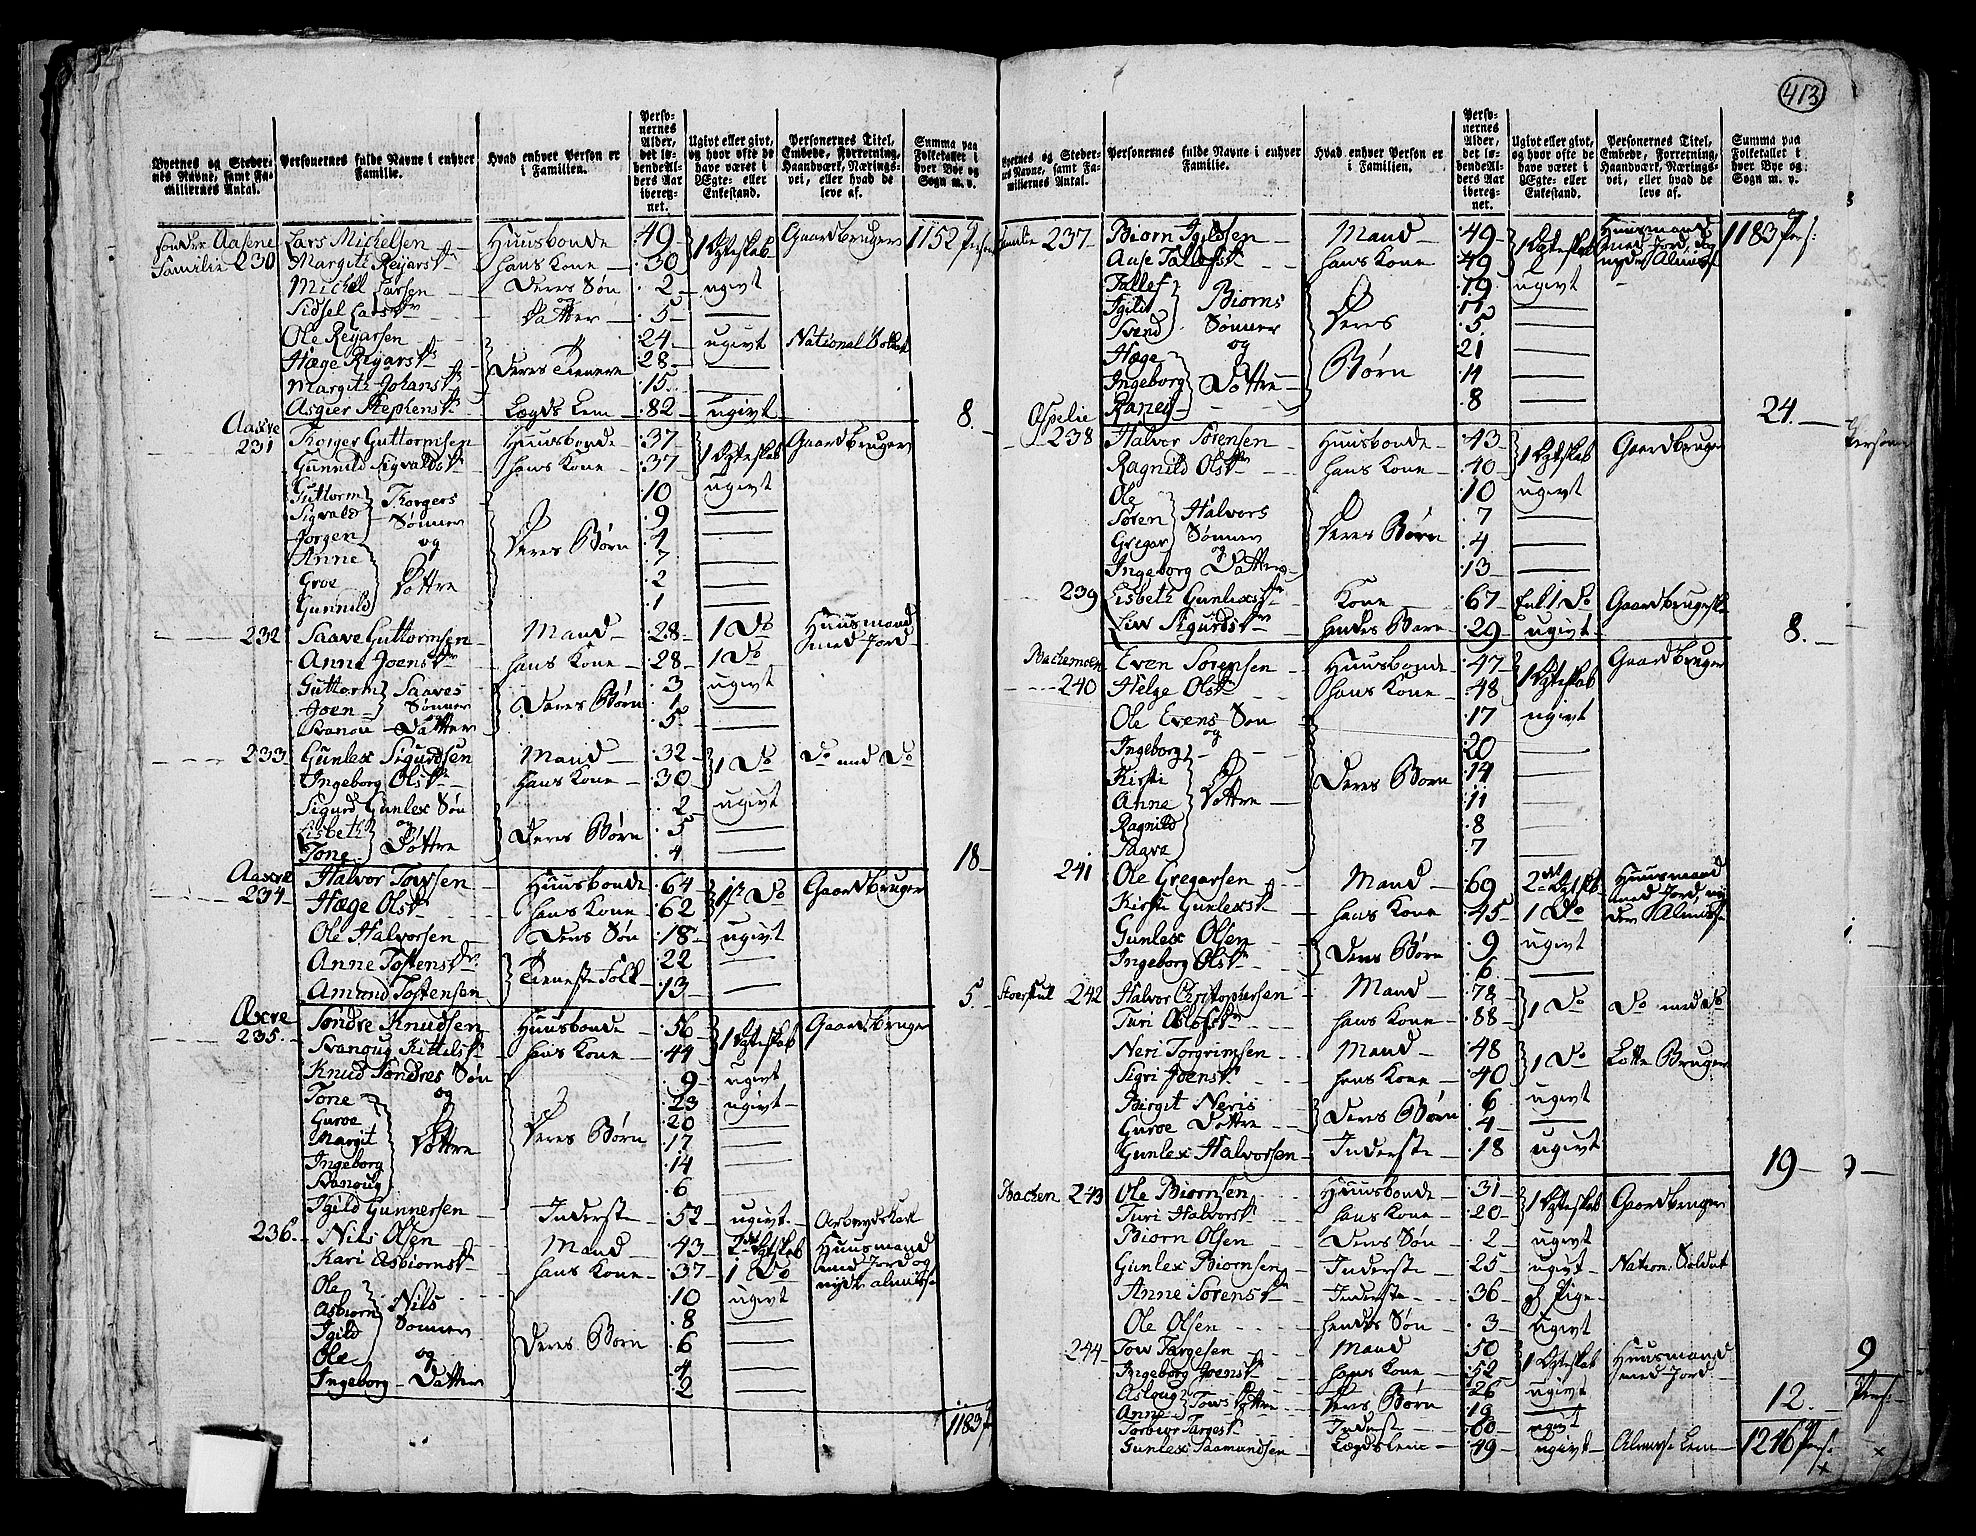 413
Byernes og Stedernes Navne, samt Familiernes Antal.
Personernes fulde Navne i enhver Familie.
Hvad enhver Person er i Familien.
Personernes Alder, det løbende Alders Aar iberegnet.
Ugivt eller givt, og hvor ofte de have været i Ægte- eller Enkestand.
Personernes Titel, Embede, Forretning, Haandværk, Næringsvei, eller hvad de leve af.
Summa paa Folketallet i hver Bye og Sogn m. v.
Sønder Aasene Lars Michelsen Huusbonde 49 1 Ægteskab Gaardbruger 1152 Pers
Familie 230 Margith Reyarsdr hans Kone 30
Michel Larsen Deres Søn 2 ugivt
og
Sidsel Larsdr Datter 5
Ole Reyarsen 24 ugivt National Soldat
Hæge Reyarsdr Deres Tienere 28
Margith Johansdr 15
Asgier Stephensdr Lægds Lem 82 ugivt 8.
Aaxre
231 Torger Guttormsen Huusbonde 37 1 Ægteskab Gaardbruger
Gunnild Sigvaldsdr hans Kone 37
Guttorm Torgers 10 ugivt
Sigvald Sønner 9
Jorgen og Deres Børn 4
Anne 7
Groe Døttre 2
Gunnild 1
232 Saave Guttormsen Mand 28 1 Do Huusmand med Jord
Anne Joensdr hans Kone 28 1 Do
Guttorm Saaves 3 ugivt
Joen Sønner Deres Børn 1
Svanou Datter 5
233 Gunlex Sigurdsen Mand 32 1 Do Do med Do
Ingeborg Olsdr Hans Kone 30
Sigurd Gunlex Søn 2 ugivt
Lisbeth og Deres Børn 5
Tone Døttre 4 18
Aaxre Halvor Tovsen Huusbonde 64 1ste Do Gaardbruger
234 Hæge Olsdr hans Kone 62
Ole Halvorsen Deres Søn 18 ugivt
Anne Tostensdr Tieneste Folk 22
Amund Tostensen 13 5
Axre Søndre Knudsen Huusbonde 56 1 Ægteskab Gaardbruger
235 Svanoug Kittelsdr hans Kone 44
Knud Søndres Søn 9 ugivt
Tone og 23 ugivt
Guroe 20
Margit Døttre Deres Børn 17
Ingeborg 14
Svanoug 6
Igild Gunnersen Inderste 52 ugivt Arbeyds Karl
236 Nils Olsen Mand 43 2 Ægtskab Huusmand
Kari Asbiornsdr hans Kone 37 1 Do med Jord og nyder almisse
Ole 10 ugivt
Asbiorn Nils 8
Igild Sønner Deres Børn 6
Ole og 4
Ingeborg Datter 2
1183 P
Byernes og Stedernes Navne, samt Familiernes Antal.
Personernes fulde Navne i enhver Familie.
Hvad enhver Person er i Familien.
Personernes Alder, det løbende Alders Aar iberegnet.
Ugivt eller givt, og hvor ofte de have været i Ægte- eller Enkestand.
Personernes Titel, Embede, Forretning, Haandværk, Næringsvei, eller hvad de leve af.
Summa paa Folketallet i hver Bye og Sogn m. v.
Familie 237 Biorn Igildsen Mand 49 1 Ægteskab Huusmand med Jord, og nyder Almisse 1183 Pers:
Aase Tallefsdr hans Kone 49
Tallef 19 ugivt
Igild Biorns 17
Svend Sønner Deres 5
Hæge og 21
Ingeborg Døttre Børn 14
Ranej 8 24.
Ospelie
238 Halvor Sørensen Huusbonde 43 1 Ægteskab Gaardbruger
Ragnild Olsdr hans Kone 40
Ole 10 ugivt
Søren Halvors 7
Gregar Sønner Deres Børn 4
Ingeborg og Datter 13
239 Lisbeth Gunlexsdr Kone 67 Enk 1 Do Gaardbrugerske
Liv Sigurdsdr hendes Barn 29 ugivt 8.
Bachemoen Even Sorensen Huusbonde 47 1 Ægteskab Gaardbruger
240 Helge Olsdr hans Kone 48
Ole Evens Søn 17 ugivt
og
Ingeborg 20
Kirsti 14
Anne Døttre Deres Børn 11
Ragnild 8
Saave 7
241 Ole Gregarsen Mand 69 2den Ægtesk Huusmand med Jord, nyder Almisse
Kirsti Gunlexsdr hans Kone 45 1 Do
Gunlex Olsen Deres Børn 9 ugivt
Ingeborg Olsdr 6
Stoerkul 242 Halvor Christophersen Mand 78 1 Do Do med do
Turi Olsdr hans Kone 88
Neri Torgrimsen Mand 48 1 Do Lotte Bruger
Sigri Joensdr hans Kone 40
Birgit Neris Deres Børn 6 ugivt
Guroe Døttre 4
Gunlex Halvorsen Inderste 18 ugivt 19
Bachen 243 Ole Biornsen Huusbonde 31 1 Ægteskab Gaardbruger
Turi Halvorsdr hans Kone 20
Biorn Olsen Deres Søn 2 ugivt
Gunlex Biornsen Inderste 25 ugivt Nation: Soldat
Anne Sørensdr Inderste 36 Pige
Ole Olsen hendes Søn 3 ugivt
244 Tov Targesen Mand 50 1 Ægteskab Huusmand med Jord
Ingeborg Joensdr hans Kone 52
Aslaug Tovs 26 ugivt
Anne Døttre Deres Børn 19
Torbiør Targesdr Inderste 60 ugivt
Gunlex Saamundsen Lægdslem 49 ugivt Almisse Lem
12.
1246 Pers:
Persone
9
9
Pers: